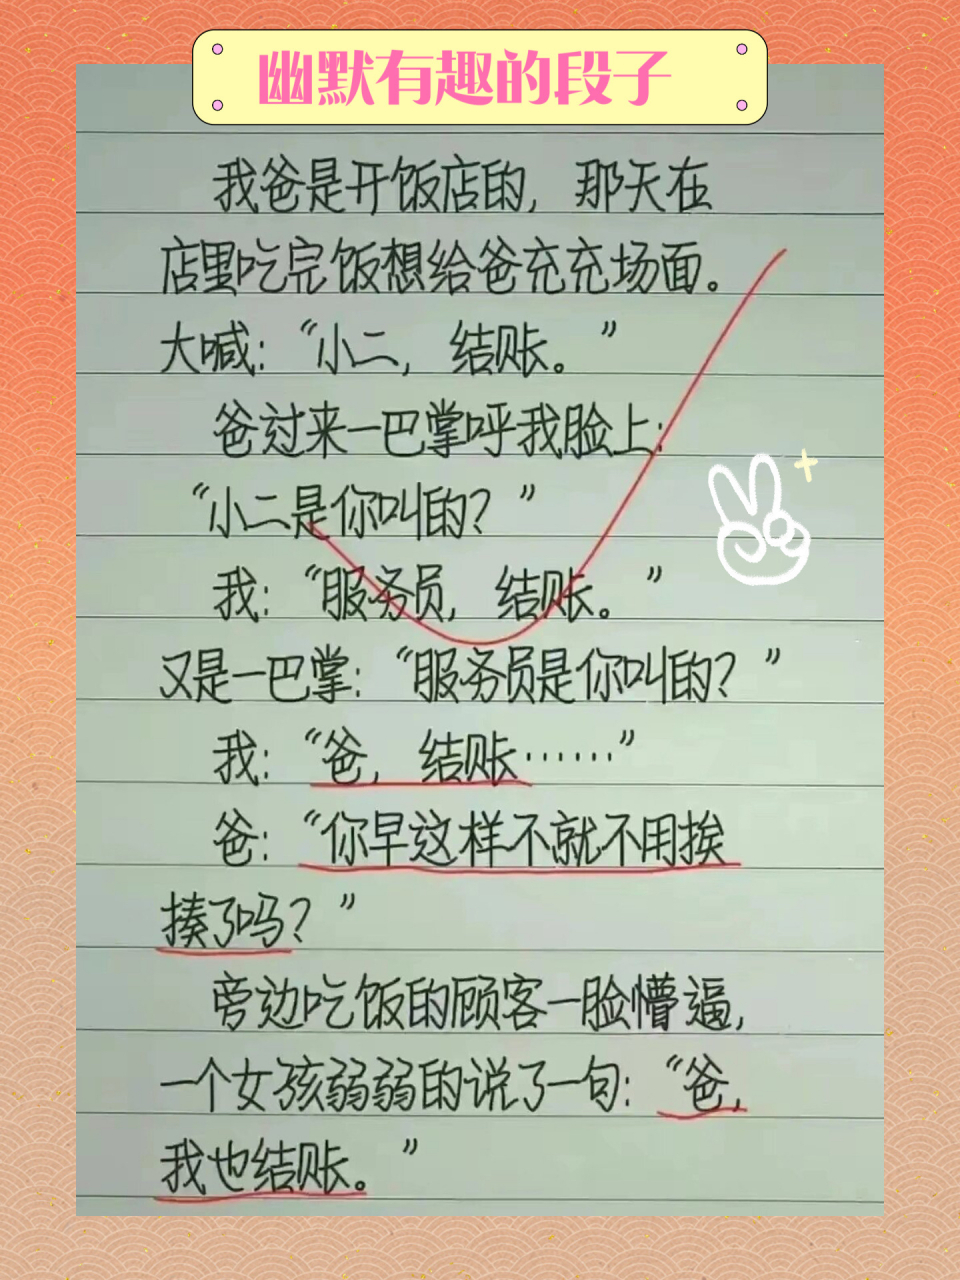 幽默有趣的段子
我爸是开饭店的，那天在
店里吃完饭想给爸充充场面。
大喊：“小二，结账。”
爸过来一巴掌呼我脸上：
“小二是你叫的？”
我：“服务员，结账。”
又是一巴掌：“服务员是你叫的？”
我：“爸，结账……”
爸：“你早这样不就不用挨
揍了吗？”
旁边吃饭的顾客一脸懵逼，
一个女孩弱弱的说了一句：“爸，
我也结账。”